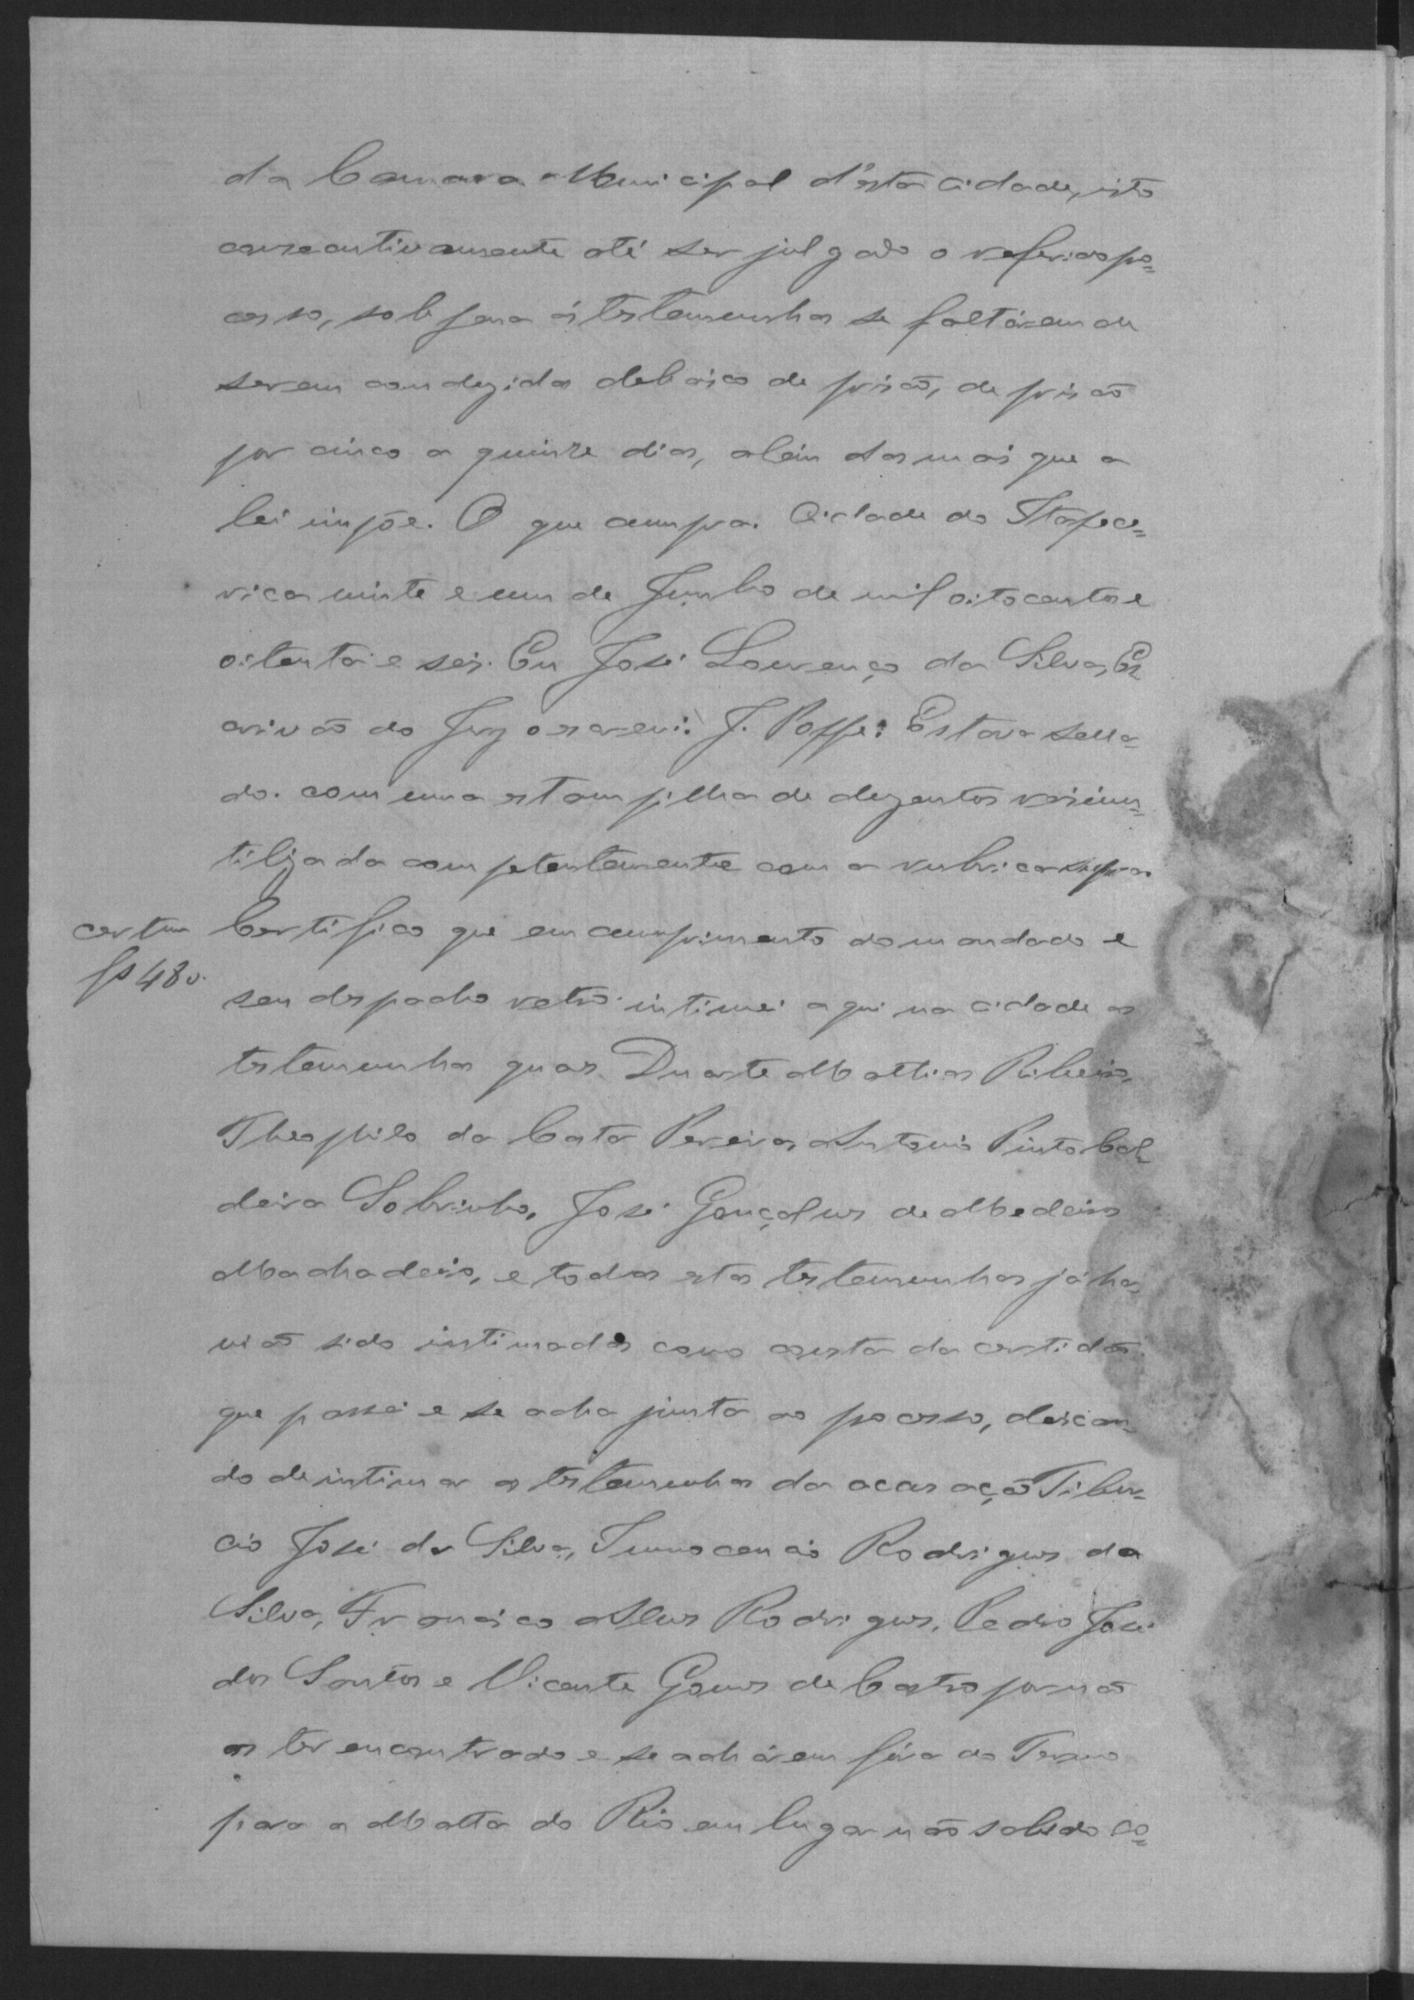 da Camara Municipal d'esta cidade, isto
consecutivamente até ser julgado o referido pro=
cesso, sob pena ás testemunhas se faltárem de
serem conduzidas debaixo de prisão, de prisão
por cinco a quinze dias, além das mais que a
lei impõe. O que cumpra. Cidade do Itapece=
rica vinte e um de Junho de mil oitocentos e
oitenta e seis. Eu José Lourenço da Silva, Es
crivão do Jury escrevi. J. Poffe: Estava sella=
do com uma estampilha de duzentos reis inu=
tilizada competentemente com a rubrica supra.
certam
fs 48v.
Certifico que em cumprimento do mandado e
seu despacho retro intimei aqui na cidade as
testemunhas Duarte Mathias Ribeiro,
Theophilo da Costa Pereira Antonio Pinto Cal
deira Sobrinho, José Gonçalves de Medeiros
Machadeiro, e todas estas testemunhas já ha
vião sido intimadas como consta da certidão
que passei e se acha junta ao processo, deixan
do de intimar as testemunhas da acusação Tibur=
cio José da Silva, Innocencio Rodrigues da
Silva, Francisco Alves Rodrigues, Pedro José
dos Santos e Vicente Gomes de Castro por não
os ter encontrado e se achárem fóra do Termo
para a Matta do Rio em lugar não sabido co=